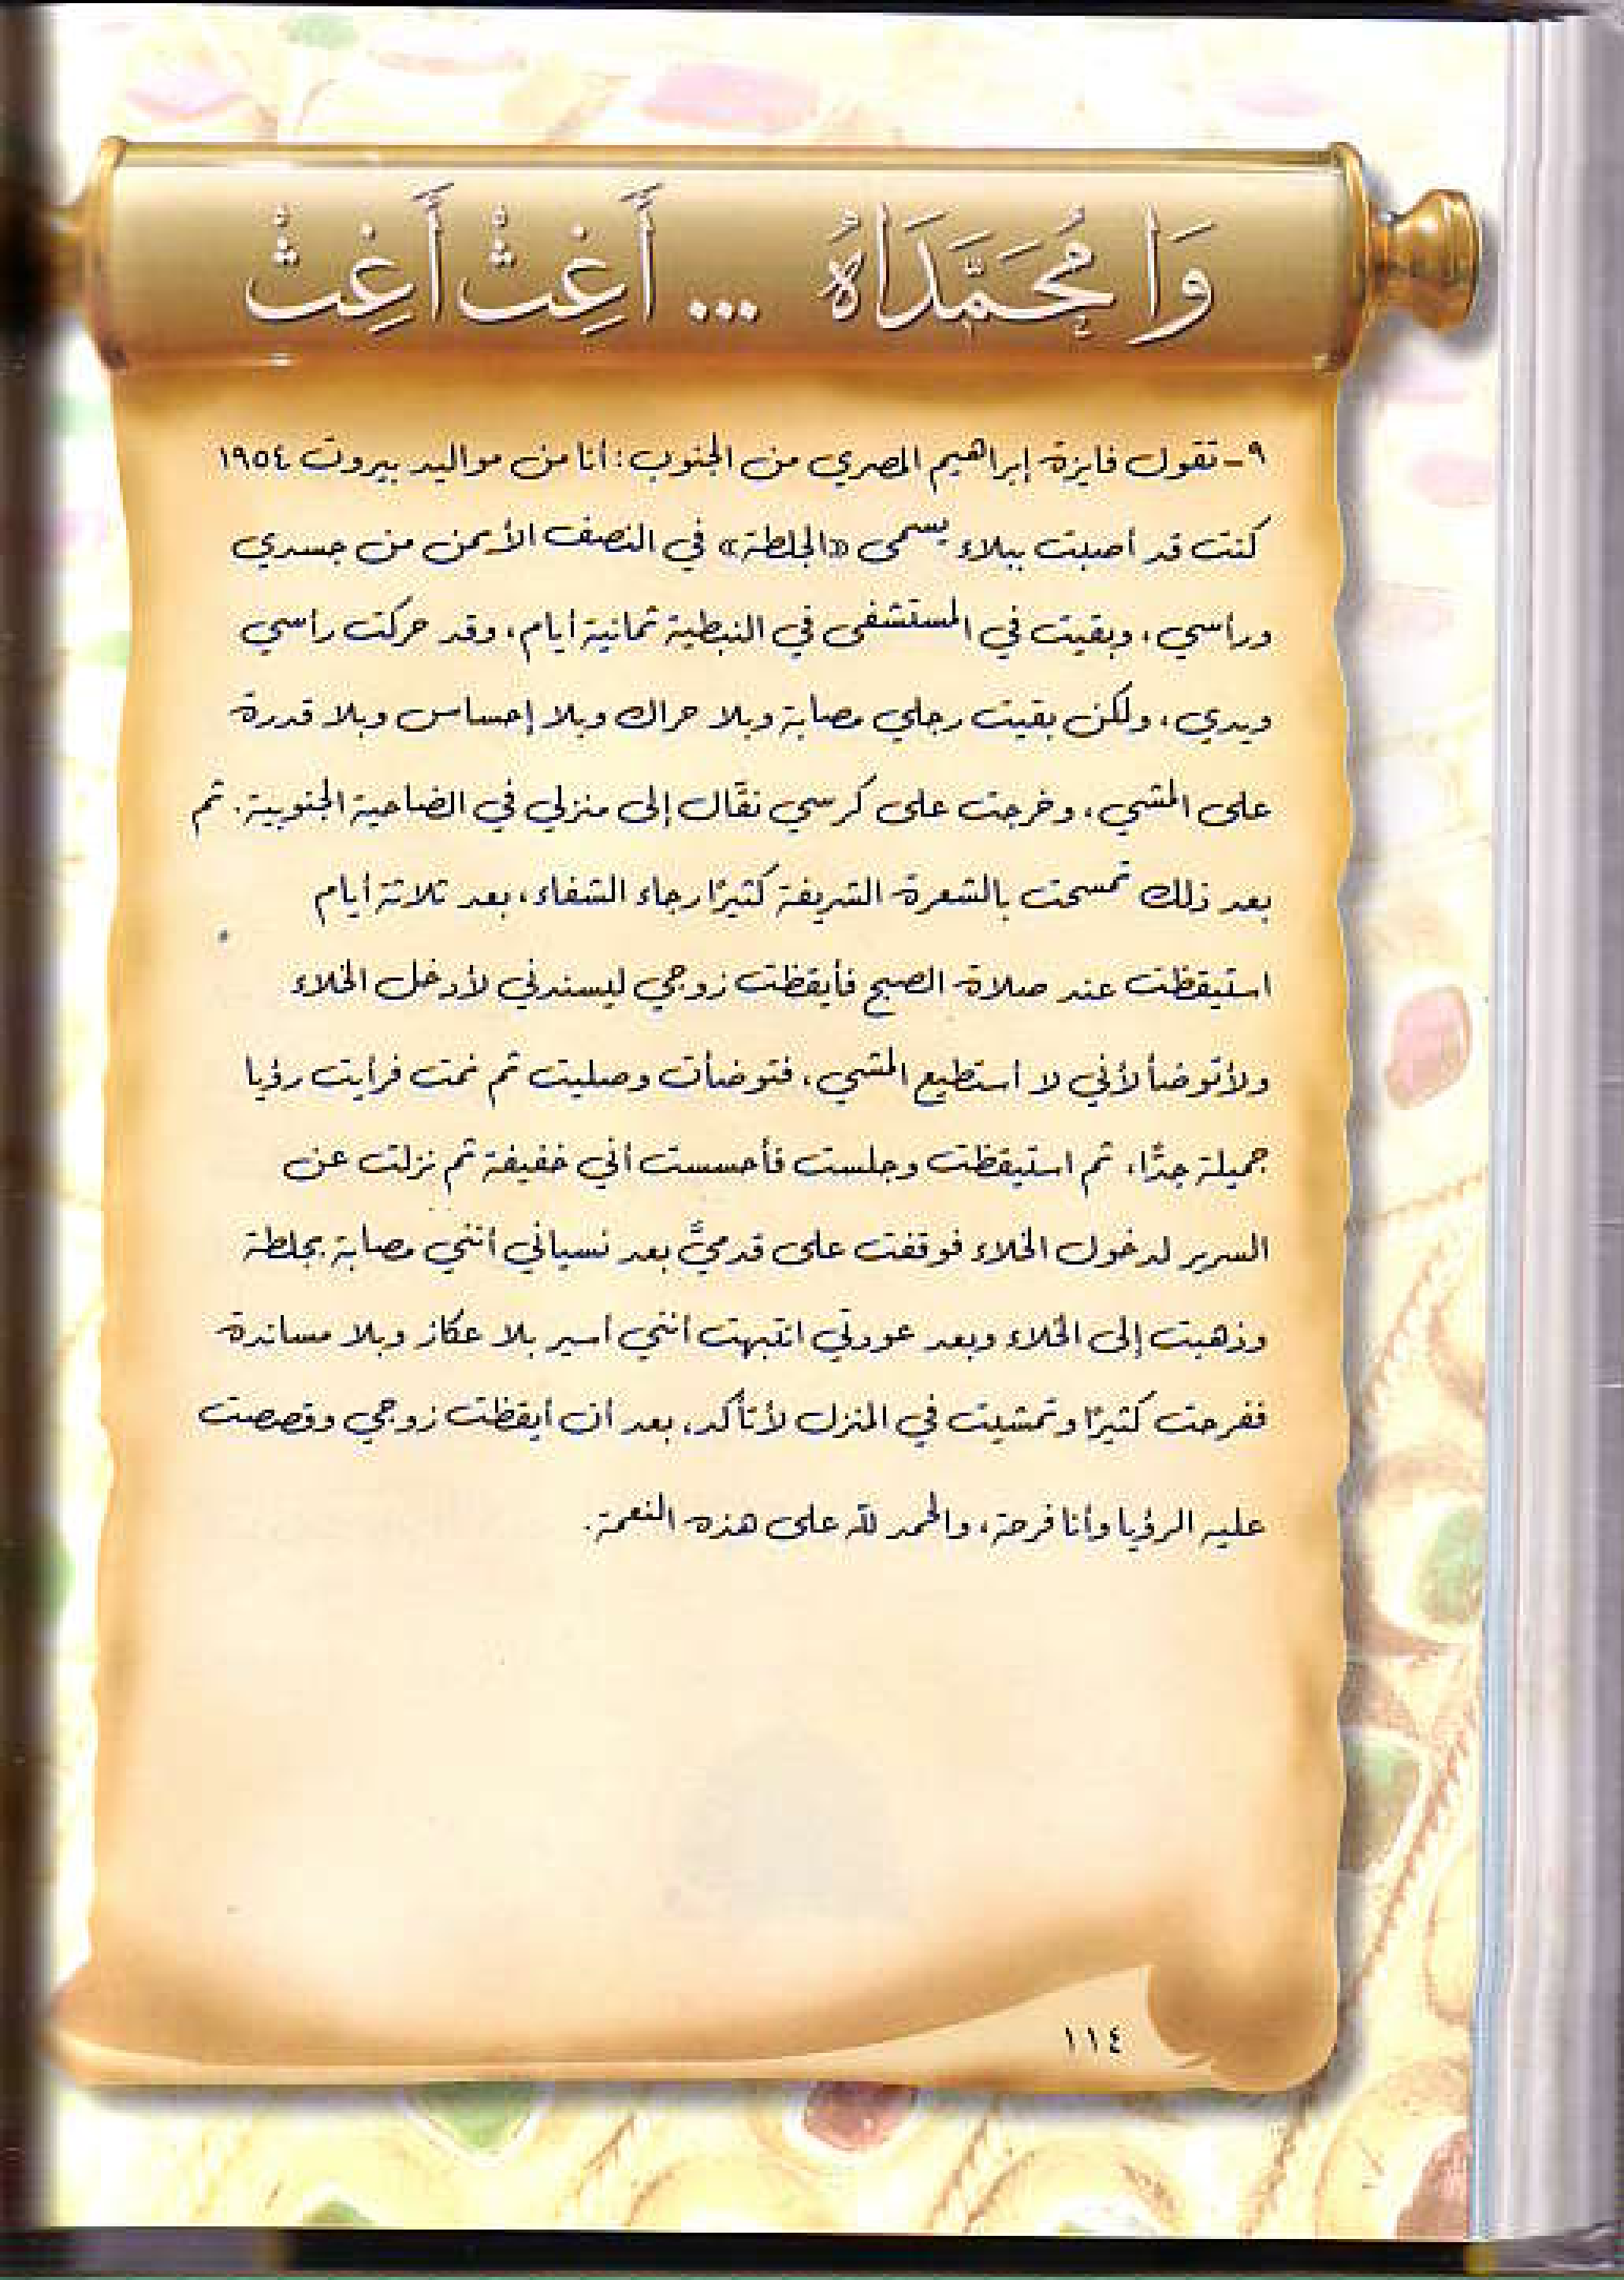 وَا مُحَمَّدَاهُ ... أَغِثْ أَغِثْ
٩- تقول فايزة إبراهيم المصري من الجنوب: أنا من مواليد بيروت ١٩٥٤
كنت قد أصبت ببلاء يسمى «الجلطة» في النصف الأيمن من جسدي
ورأسي، وبقيت في المستشفى في النبطية ثمانية أيام، وقد حركت رأسي
ويدي، ولكن بقيت رجلي مصابة وبلا حراك وبلا إحساس وبلا قدرة
على المشي، وخرجت على كرسي نقّال إلى منزلي في الضاحية الجنوبية. ثم
بعد ذلك تمسحت بالشعرة الشريفة كثيرًا رجاء الشفاء، بعد ثلاثة أيام
استيقظت عند صلاة الصبح فأيقظت زوجي ليسندني لأدخل الخلاء
ولأتوضأ لأني لا أستطيع المشي، فتوضأت وصليت ثم نمت فرأيت رؤيا
جميلة جدًّا، ثم استيقظت وجلست فأحسست أني خفيفة ثم نزلت عن
السرير لدخول الخلاء فوقفت على قدميَّ بعد نسياني أنني مصابة بجلطة
وذهبت إلى الخلاء وبعد عودتي انتبهت أنني أسير بلا عكاز وبلا مساندة
ففرحت كثيرًا وتمشيت في المنزل لأتأكد، بعد أن أيقظت زوجي وقصصت
عليه الرؤيا وأنا فرحة، والحمد لله على هذه النعمة.
١١٤